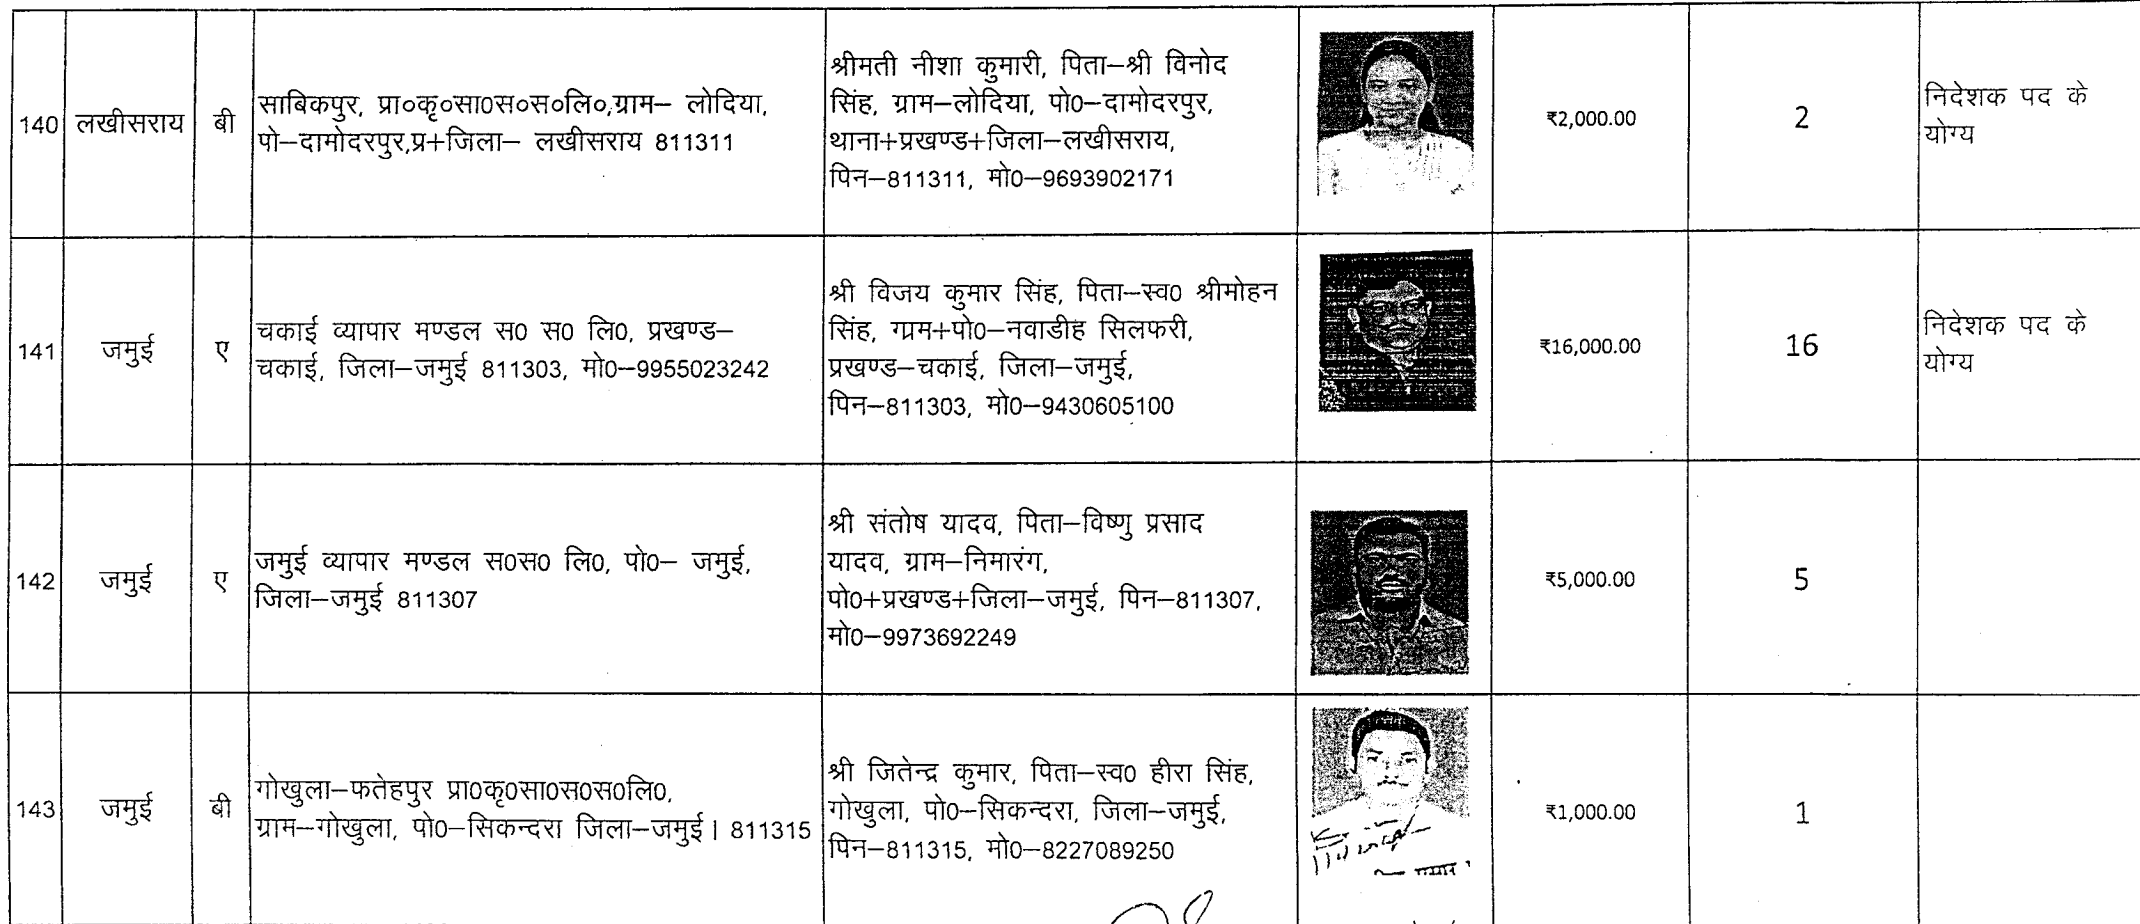 140
लखीसराय
बी
साबिकपुर, प्रा०कृ०सा0स०स०लि०,ग्राम– लोदिया,
पो–दामोदरपुर,प्र+जिला– लखीसराय 811311
श्रीमती नीशा कुमारी, पिता–श्री विनोद
सिंह, ग्राम–लोदिया, पो0–दामोदरपुर,
थाना+प्रखण्ड+जिला–लखीसराय,
पिन–811311, मो0–9693902171
₹2,000.00
2
निदेशक पद के
योग्य
141
जमुई
ए
चकाई व्यापार मण्डल स0 स0 लि0, प्रखण्ड–
चकाई, जिला–जमुई 811303, मो0–9955023242
श्री विजय कुमार सिंह, पिता–स्व0 श्रीमोहन
सिंह, ग्राम+पो0–नवाडीह सिलफरी,
प्रखण्ड–चकाई, जिला–जमुई,
पिन–811303, मो0–9430605100
₹16,000.00
16
निदेशक पद के
योग्य
142
जमुई
ए
जमुई व्यापार मण्डल स0स0 लि0, पो0– जमुई,
जिला–जमुई 811307
श्री संतोष यादव, पिता–विष्णु प्रसाद
यादव, ग्राम–निमारंग,
पो0+प्रखण्ड+जिला–जमुई, पिन–811307,
मो0–9973692249
₹5,000.00
5
143
जमुई
बी
गोखुला–फतेहपुर प्रा0कृ0सा0स0स0लि0,
ग्राम–गोखुला, पो0–सिकन्दरा जिला–जमुई। 811315
श्री जितेन्द्र कुमार, पिता–स्व0 हीरा सिंह,
गोखुला, पो0–सिकन्दरा, जिला–जमुई,
पिन–811315, मो0–8227089250
₹1,000.00
1